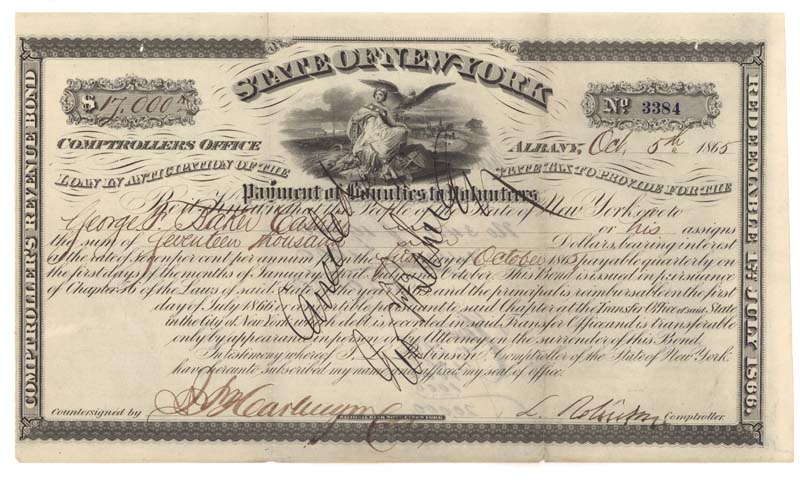 STATE OF NEW-YORK
$17,000
No 3384
COMPTROLLERS OFFICE
ALBANY, Oct. 5th 1865
LOAN IN ANTICIPATION OF THE STATE TAX TO PROVIDE FOR THE
Payment of Bounties to Volunteers
People of State of New York, owe to
George F. Baker or his assigns
the sum of Seventeen thousand Dollars, bearing interest
at the rate of Seven per cent per annum day of October 1865 payable quarterly on
the first days of the months of January October. This Bond is issued in pursuance
of Chapter 56 of the Laws of said State and the principal is reimbursable on the first
day of July 1866 pursuant to said Chapter at the Transfer Office of said State
in the City of New York debt is recorded in said Transfer Office and is transferable
only by appearance in person or by Attorney on the surrender of this Bond.
In testimony whereof I, Comptroller of the State of New York
have hereunto subscribed my name and affixed my seal of office.
Countersigned by
L. Robinson Comptroller
COMPTROLLER'S REVENUE BOND
REDEEMABLE 1st JULY 1866.
Cancelled